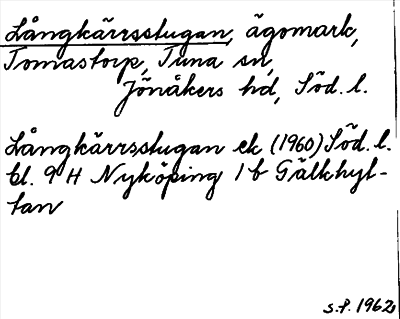 Långkärrsstugan, ägomark,
Tomastorp, Tuna sn,
Jönåkers hd, Söd. l.
Långkärrsstugan ek (1960) Söd. l.
bl. 9 H Nyköping 1 b Gälkhyt-
tan
s.f. 1962